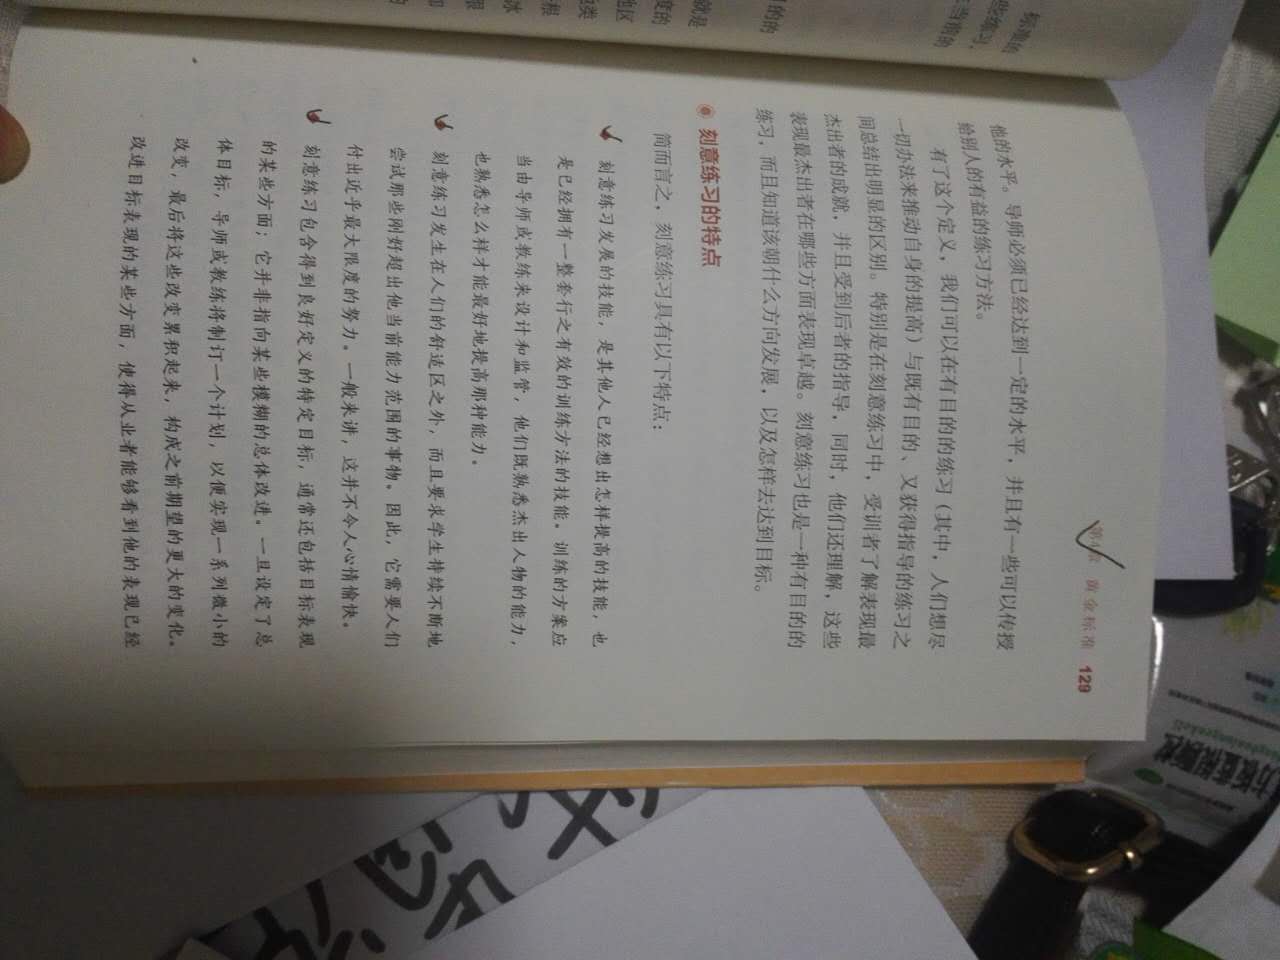 第4章 黄金标准 129
他的水平。导师必须已经达到一定的水平，并且有一些可以传授
给别人的有益的练习方法。
有了这个定义，我们可以在有目的的练习（其中，人们想尽
一切办法来推动自身的提高）与既有目的、又获得指导的练习之
间总结出明显的区别。特别是在刻意练习中，受训者了解表现最
杰出者的成就，并且受到后者的指导，同时，他们还理解，这些
表现最杰出者在哪些方面表现卓越。刻意练习也是一种有目的的
练习，而且知道该朝什么方向发展，以及怎样去达到目标。
刻意练习的特点
简而言之，刻意练习具有以下特点：
刻意练习发展的技能，是其他人已经想出怎样提高的技能，也
是已经拥有一整套行之有效的训练方法的技能。训练的方案应
当由导师或教练来设计和监管，他们既熟悉杰出人物的能力，
也熟悉怎么样才能最好地提高那种能力。
刻意练习发生在人们的舒适区之外，而且要求学生持续不断地
尝试那些刚好超出他当前能力范围的事物。因此，它需要人们
付出近乎最大限度的努力。一般来讲，这并不令人心情愉快。
刻意练习包含得到良好定义的特定目标，通常还包括目标表现
的某些方面；它并非指向某些模糊的总体改进。一旦设定了总
体目标，导师或教练将制订一个计划，以便实现一系列微小的
改变，最后将这些改变累积起来，构成之前期望的更大的变化。
改进目标表现的某些方面，使得从业者能够看到他的表现已经